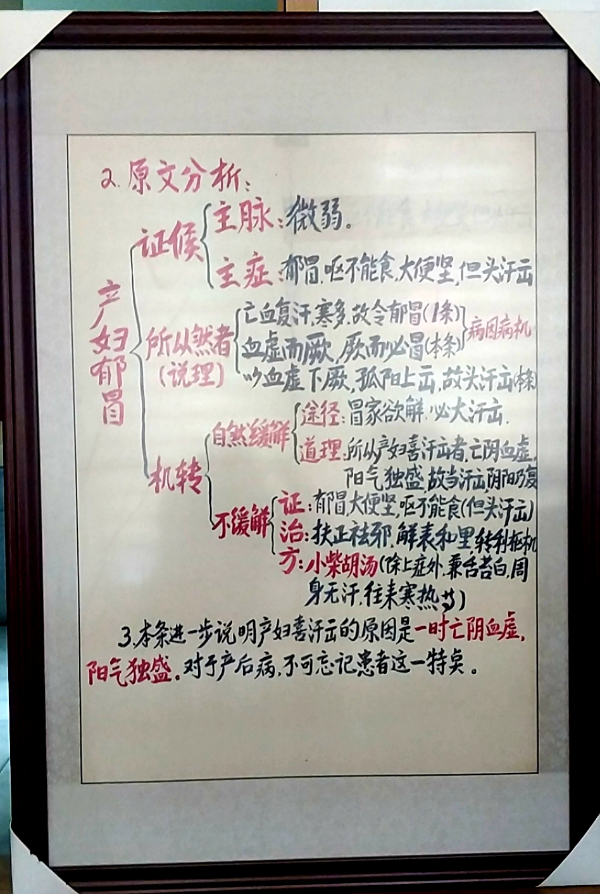 2.原文分析:
产妇郁冒
证候
主脉:微弱。
主症:郁冒,呕不能食,大便坚,但头汗出
所以然者
(说理)
亡血复汗,寒多,故令郁冒(1条)
血虚而厥,厥而必冒(本条)
病因病机
以血虚下厥,孤阳上出,故头汗出(本条)
机转
自然缓解
途径:冒家欲解,必大汗出.
道理:所以产妇喜汗出者,亡阴血虚,
阳气独盛,故当汗出阴阳乃复
不缓解
证:郁冒大便坚,呕不能食(但头汗出)
治:扶正祛邪,解表和里,转利枢机
方:小柴胡汤(除上症外,兼舌苔白,周
身无汗,往来寒热等)
3.本条进一步说明产妇喜汗出的原因是一时亡阴血虚,
阳气独盛。对于产后病,不可忘记患者这一特点。